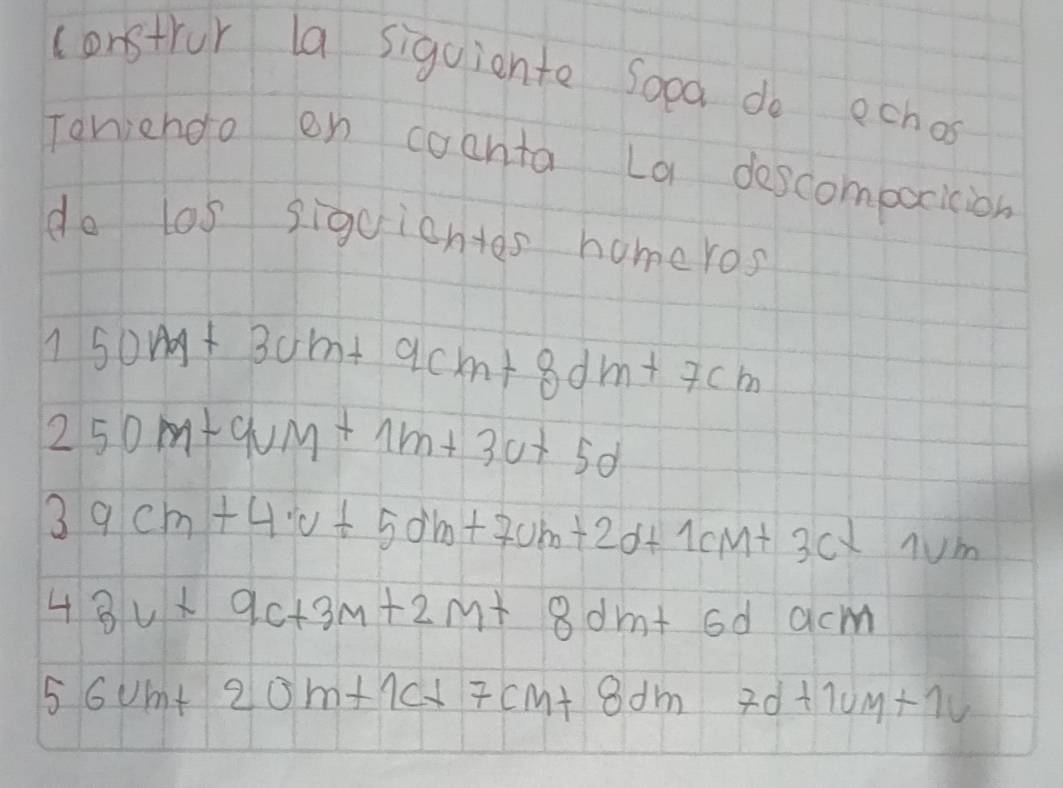 construr la siguiente sopa de echos
Teniendo en cuenta La descomposicion
de los siguientes numeros
1 50M+ 3Um+ 9cm+ 8dm+ 7cm
2 50m+9UM+ 1m+3U+ 5d
3 9cm+4U+ 5dm+7Um+2d+ 1cM+ 3c+ 1Um
4 8U+ 9c+3M+2M+ 8dm+ 6d 9cm
5 6Um+ 20m+1c+ 7cM+ 8dm 7d+1UM+1U